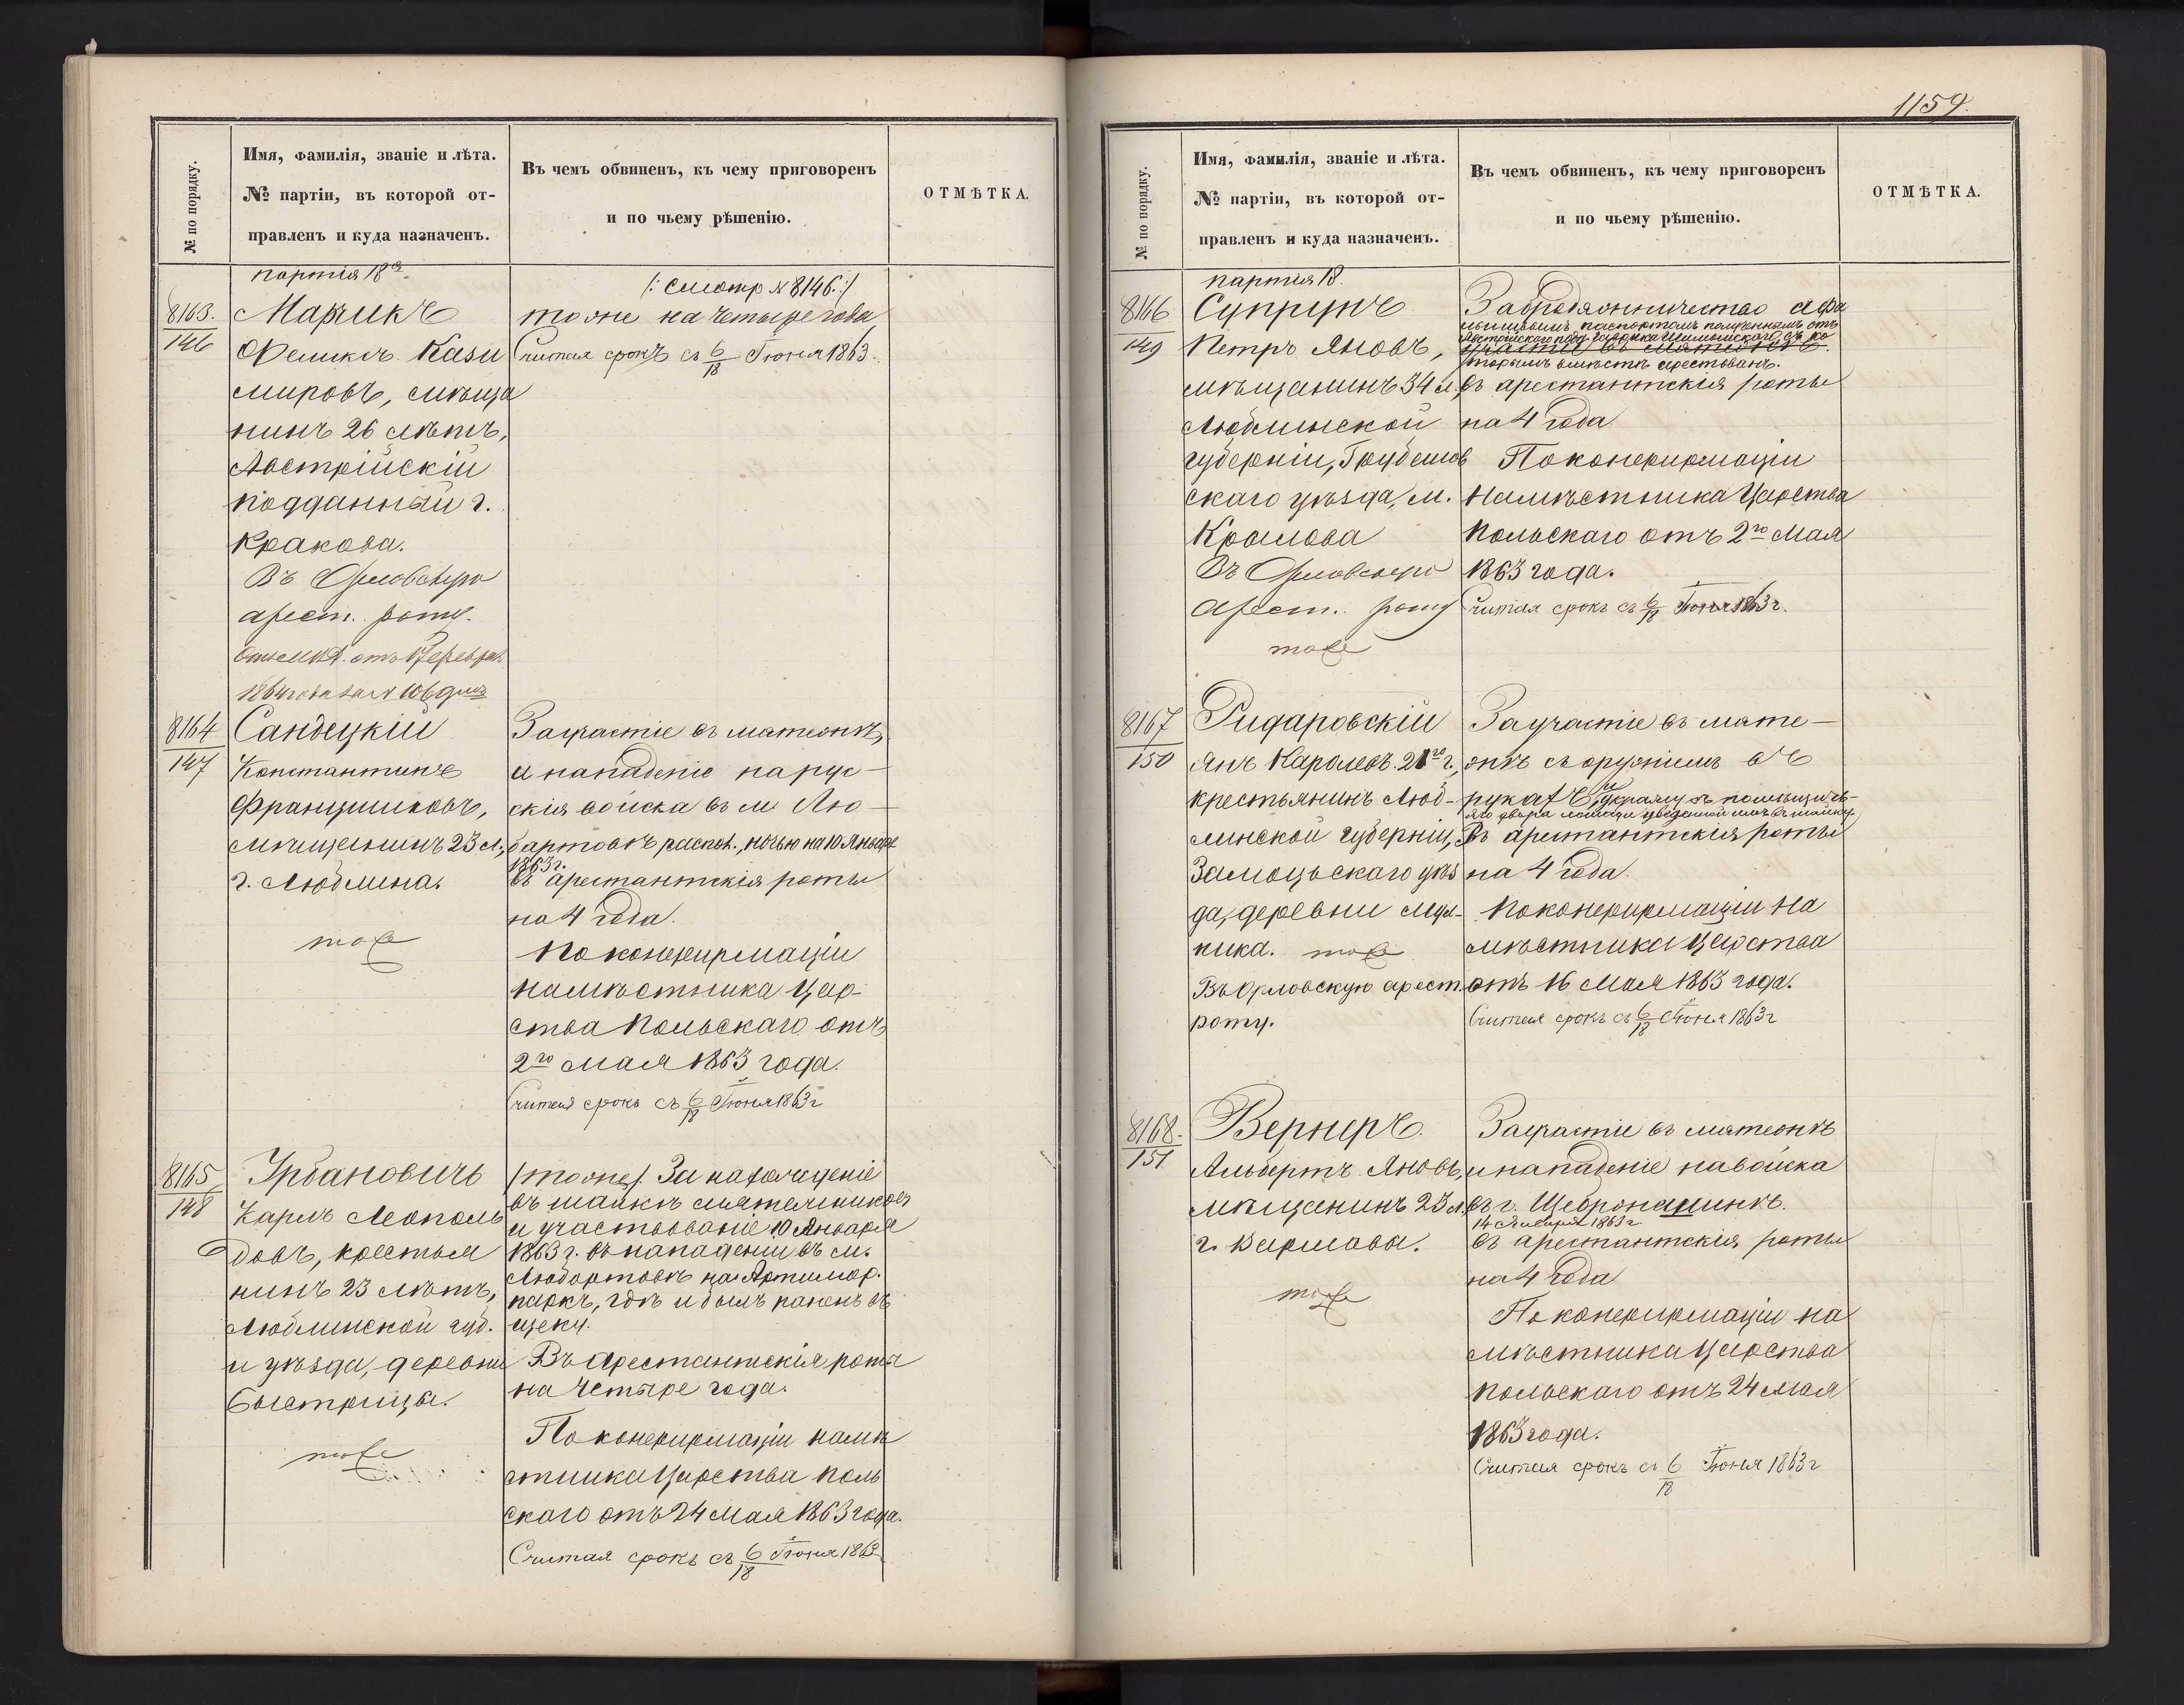 № по порядку.
Имя, фамилія, званіе и лѣта.
№ партіи, въ которой от-
правленъ и куда назначенъ.
Въ чемъ обвиненъ, къ чему приговоренъ
и по чьему рѣшенію.
ОТМѢТКА.
партія 18я
8163.
146
Марикъ
Феликсъ Кази
мировъ, мѣща
нинъ 26 лѣтъ,
Австрійскій
подданный г.
Кракова.
Въ Орловскую
арест. роту.
1864 года за № 106
/: смотр № 8146. :/
тоже на четыре года
Считая срокъ съ 6/18 Іюня 1863.
8164
147
Сандецкій
Константинъ
Францишковъ,
мѣщанинъ 23 л.,
г. Люблина.
тоже
За участіе въ мятежѣ,
и нападеніе на рус-
скія войска въ м. Лю-
бартовѣ распол., ночью на 10 Января
1863 г.
въ арестантскія роты
на 4 года.
По конфирмаціи
намѣстника Цар-
ства Польскаго отъ
2го Мая 1863 года.
Считая срокъ съ 6/18 Іюня 1863 г
8165
148
Урбановичъ
Карлъ Леополь
довъ, крестья
нинъ 23 лѣтъ,
Люблинской губ.
и уѣзда, деревни
Быстрица.
тоже
/тоже/. За нахожденіе
въ шайкѣ мятежниковъ
и участвованіе 10 Января
1863 г. въ нападеніи въ м.
Любартовѣ на Артиллер.
паркъ, гдѣ и былъ раненъ въ
щеку.
Въ арестантскія роты
на четыре года.
По конфирмаціи намѣ
стника Царства Поль
скаго отъ 24 Мая 1863 года.
Считая срокъ съ 6/18 Іюня 1863
1159.
№ по порядку.
Имя, фамилія, званіе и лѣта.
№ партіи, въ которой от-
правленъ и куда назначенъ.
Въ чемъ обвиненъ, къ чему приговоренъ
и по чьему рѣшенію.
ОТМѢТКА.
партія 18.
8166
149
Супрунъ
Петръ Яновъ,
мѣщанинъ 34 л.
Люблинской
губерніи, Грубешов
скаго уѣзда, м.
Крылова
Въ Орловскую
Арест. роту
тоже
За бродяжничество съ фа
льшивымъ паспортомъ полученнымъ отъ
участіе въ мятежѣ.
торымъ вмѣстѣ арестованъ.
въ арестантскія роты
на 4 года
По конфирмаціи
Намѣстника Царства
Польскаго отъ 2го Мая
1863 года.
Считая срокъ съ 6/18 Іюня 1863 г.
8167
150
Ридаровскій
Янъ Каролевъ. 21го г.,
крестьянинъ Люб-
линской губерніи,
Замоцьскаго уѣз
да, деревни
тоже
Въ Орловскую арест.
роту.
За участіе въ мяте-
жѣ съ оружіемъ въ
рукахъ и кражу съ помѣщичь-
яго двора лошади уведенной имъ въ шайку.
Въ арестантскія роты
на 4 года.
По конфирмаціи На
мѣстника Царства
отъ 16 Мая 1863 года.
Считая срокъ съ 6/18 Іюня 1863 г
8168.
151
Вернеръ.
Альбертъ Яновъ,
мѣщанинъ 23 л.
г. Варшавы.
тоже
За участіе въ мятежѣ
и нападеніе на войска
въ г.
14 Января 1863 г.
въ арестантскія роты
на 4 года
По конфирмаціи на
мѣстника Царства
Польскаго отъ 24 Мая
1863 года.
Считая срокъ съ 6/18 Іюня 1863 г